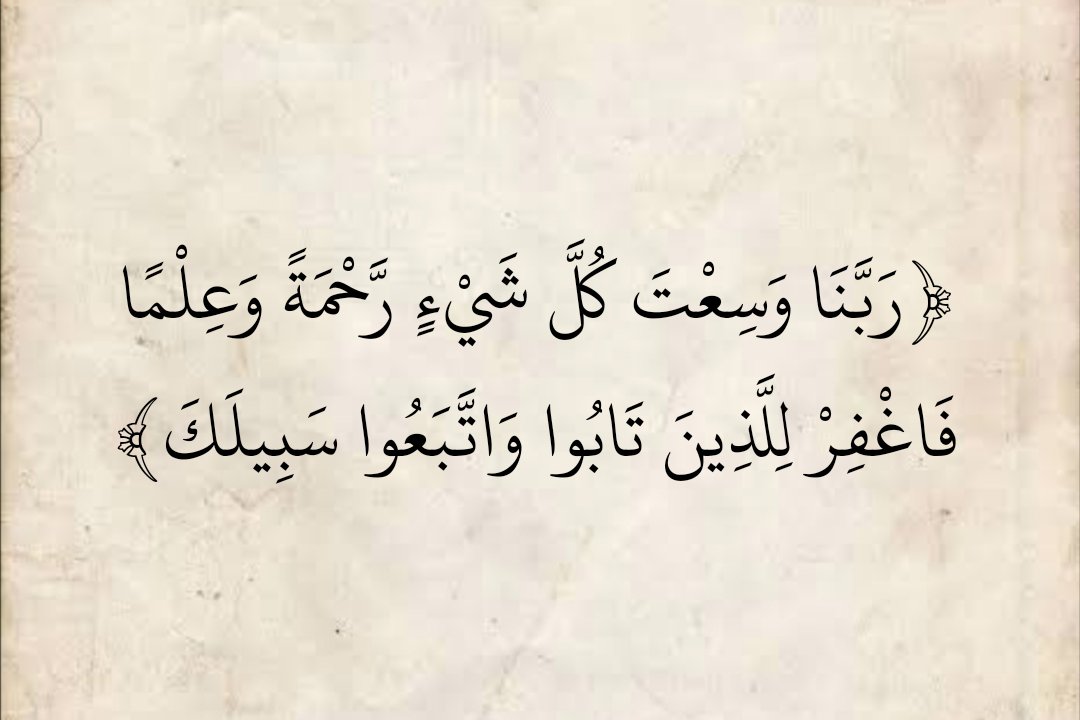 ﴿ رَبَّنَا وَسِعْتَ كُلَّ شَيْءٍ رَّحْمَةً وَعِلْمًا
فَاغْفِرْ لِلَّذِينَ تَابُوا وَاتَّبَعُوا سَبِيلَكَ ﴾